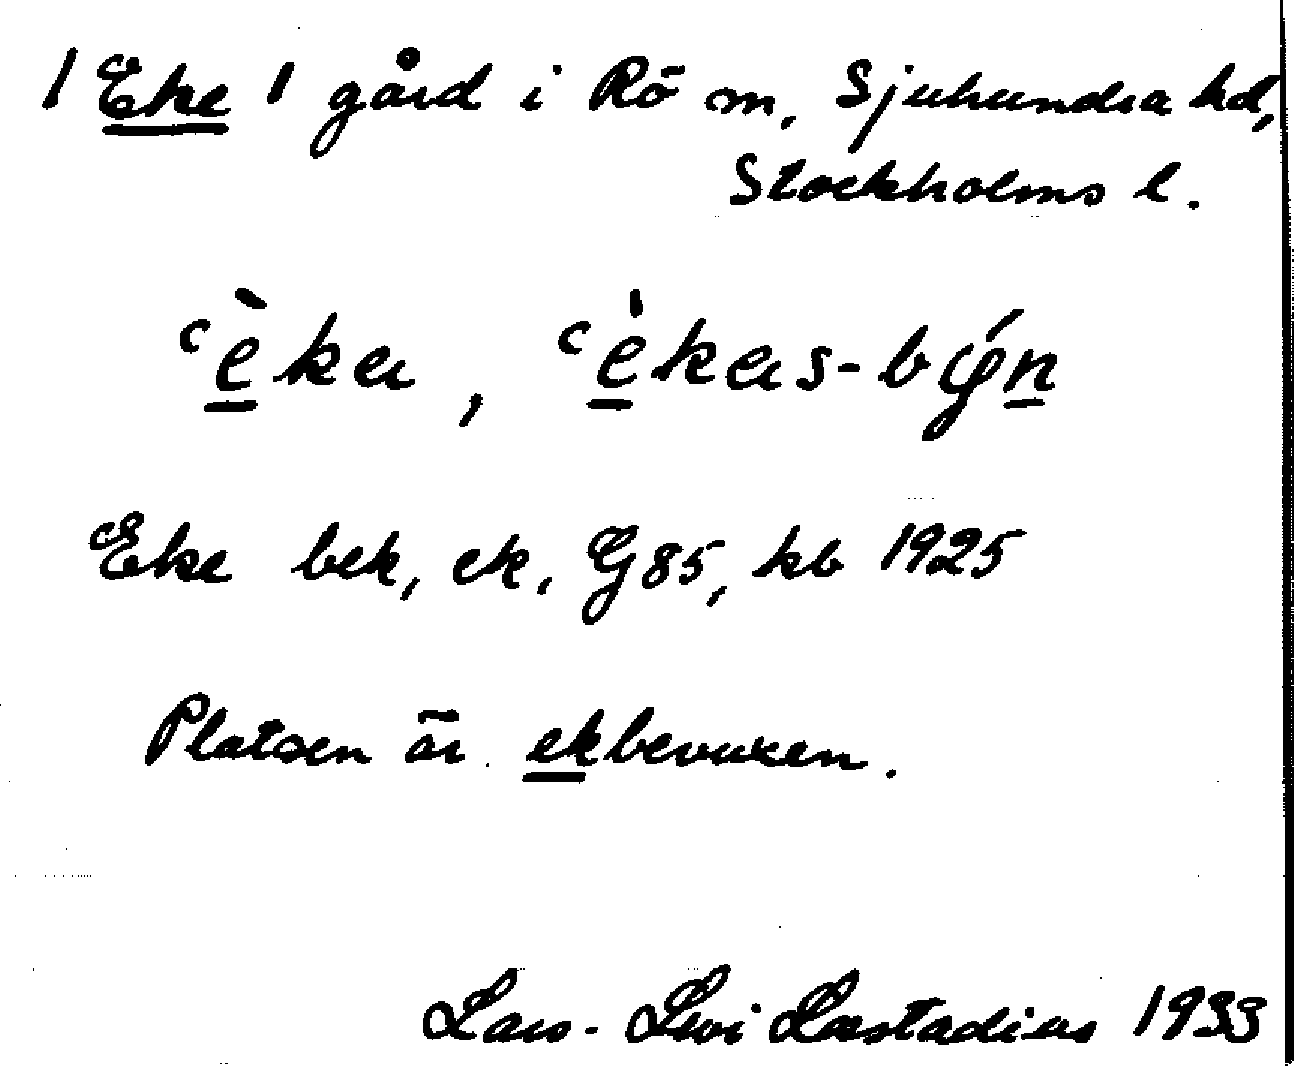 / Eke / gård i Rö sn, Sjuhundra hd,
Stockholms l.
ʿèka, ʿèkas-býn
Eke bek, ek, G85, kb 1925
Platsen är ekbevuxen.
Lars-Levi Læstadius 1933